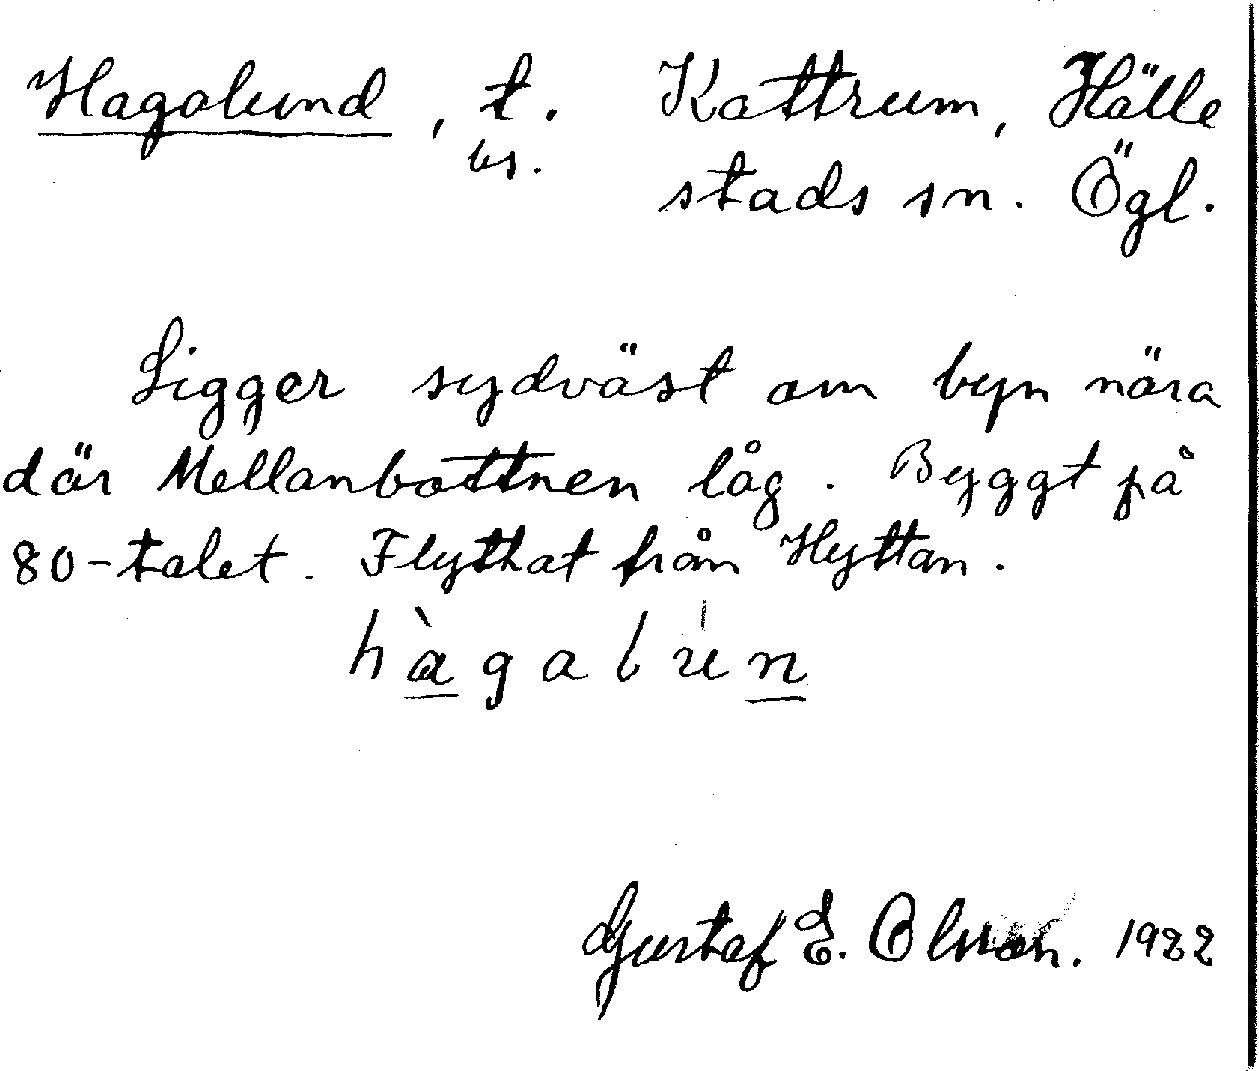 Hagalund, t. Kattrum, Hälle
bs. stads sn. Ögl.
Ligger sydväst om byn nära
där Mellanbottnen låg. Byggt på
80-talet. Flyttat från Hyttan.
hàgalún
Gustaf E. Olsson. 1932